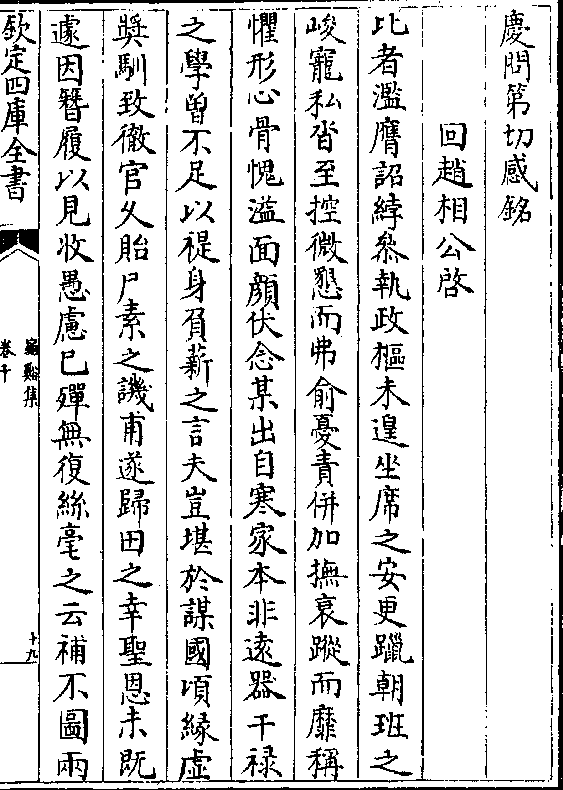 慶問第切感銘
回趙相公啓
比者濫膺詔綍叅執政樞未遑坐席之安更躐朝班之
峻寵私沓至控微懇而弗俞憂責併加撫衰蹤而靡稱
懼形心骨愧溢面顔伏念某出自寒家本非逺器干禄
之學曽不足以禔身負薪之言夫豈堪於謀國頃縁虚
奬馴致徹官乆貽尸素之譏甫遂歸田之幸聖恩未既
遽因簪履以見收愚慮已殫無復絲毫之云補不圖兩
欽定四庫全書
龜谿集
卷十
十九